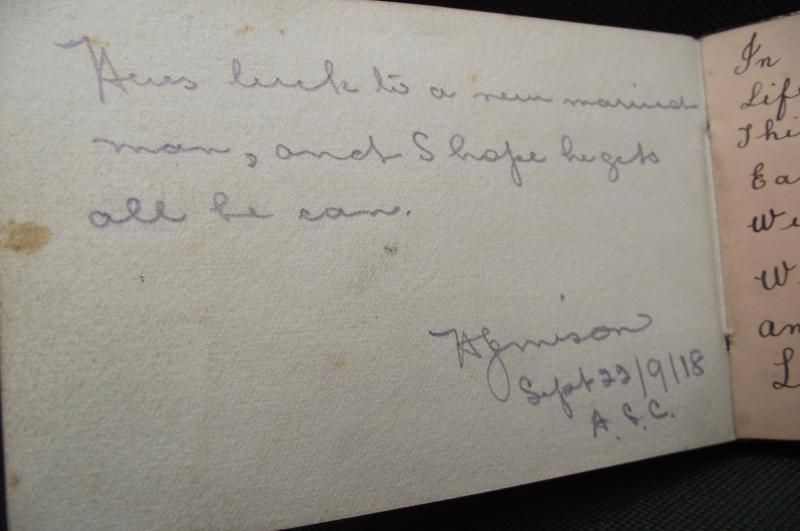 Heres luck to a new married
man, and I hope he gets
all he can.
Sept 22/9/18
A. S. C.
In
Life
Thi
Ea
We
W
an
L